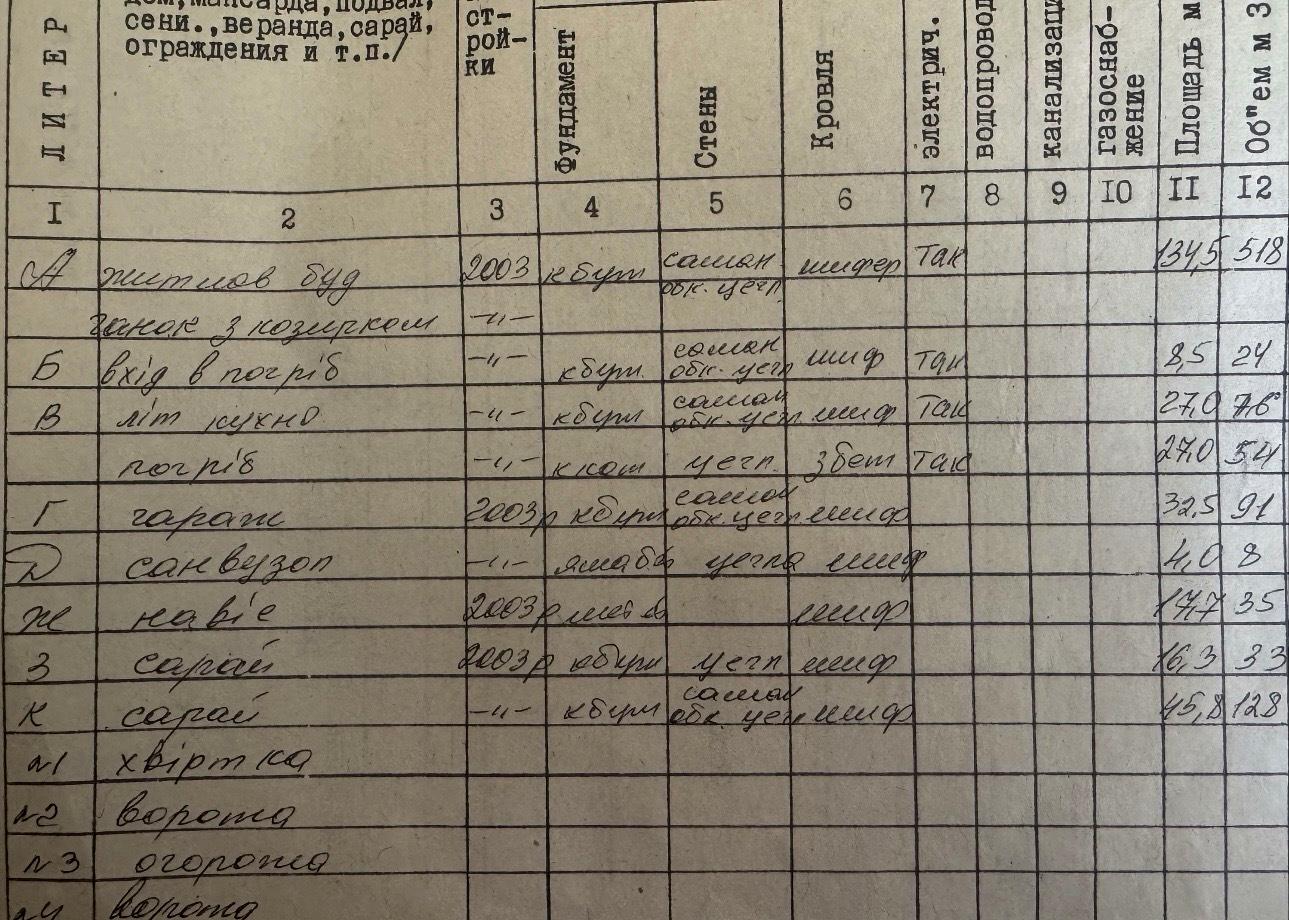 дом, мансарда, подвал,
сени., веранда, сарай,
ограждения и т.п./
ЛИТЕР
ст-
рой-
ки
Фундамент
Стены
Кровля
электрич.
водопровод
канализац
газоснаб-
жение
Площадь м
Об"ем м 3
I 2 3 4 5 6 7 8 9 IO II I2
А житлов буд 2003 кбут саман обк. цегл шифер так 134,5 518
ганок з козирком -"-
Б вхід в погріб -"- кбут саман обк. цегл шиф так 8,5 24
В літ кухно -"- кбут саман обк. цегл шиф так 27,0 76
погріб -"- ккам цегл. збет так 27,0 54
Г гараж 2003р кбут саман обк. цегл шиф 32,5 91
Д санвузол -"- цегла шиф 4,0 8
Ж навіс 2003р шиф 17,7 35
З сарай 2003р кбут цегл шиф 16,3 33
К сарай -"- кбут саман обк. цегл шиф 45,8 128
№1 хвіртка
№2 ворота
№3 огорожа
№4 ворота